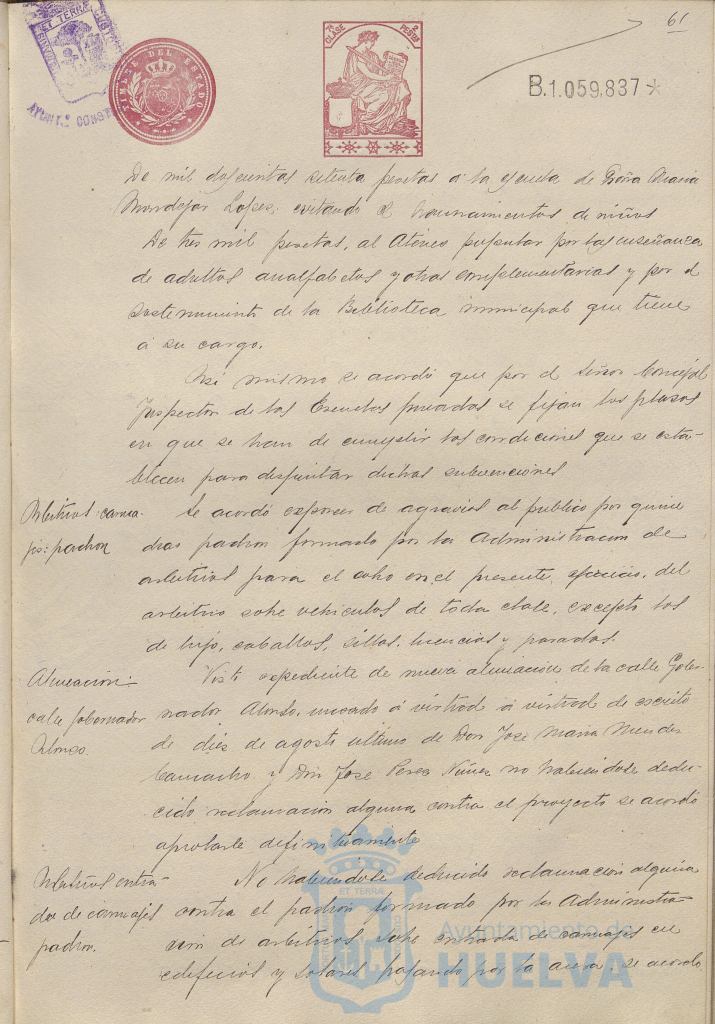 61
B.1.059,837*
7ª CLASE 2 PESETAS
TIMBRE DEL ESTADO
ET TERRÆ
AYUNT.º CONST
De mil doscientas setenta pesetas a la escuela de Doña Maria
Mondejar Lopez, evitando el hacinamientos de niños
De tres mil pesetas, al Ateneo popular por las enseñanzas
de adultos analfabetos y otras complementarias y por el
sostenimiento de la Biblioteca municipal que tiene
á su cargo.
Asi mismo se acordó que por el Señor Concejal
Inspector de las Escuelas privadas se fijan los plazos
en que se han de cumplir las condiciones que se esta-
blecen para disfrutar dichas subvenciones
Arbitrios carrua-
jes: padron
Se acordó exponer de agravios al publico por quince
dias padron formado por la Administracion de
arbitrios para el cobro en el presente ejercicio, del
arbitrio sobre vehiculos de toda clase, excepto los
de lujo, caballos, sillas, licencias y paradas.
Alineación
calle Gobernador
Alonso.
Visto expediente de nueva alineación de la calle Gober-
nador Alonso, incoado á virtud á virtud de escrito
de diez de agosto ultimo de Don Jose Maria Mendez
Camacho y Don Jose Perez Nuñez no habiendose dedu-
cido reclamación alguna contra el proyecto se acordó
aprobarle definitivamente
Arbitrios entra-
da de carruajes
padron.
No habiendose deducido reclamación alguna
contra el padron formado por la Administra-
cion de arbitrios sobre entrada de carruajes en
edificios y solares pasando por la acera, se acordó
ET TERRÆ
Ayuntamiento de
HUELVA